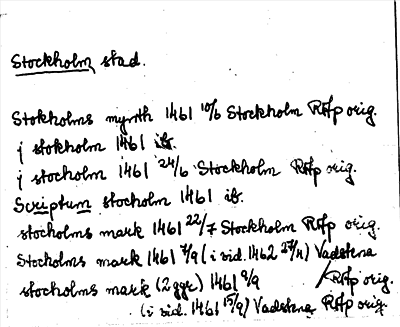 Stockholm stad.
Stokholms mynth 1461 10/6 Stockholm RAp orig.
j stokholm 1461 ib.
j stocholm 1461 24/6 Stockholm RAp orig.
Scriptum stocholm 1461 ib.
stocholms mark 1461 22/7 Stockholm RAp orig.
Stocholms mark 1461 7/9 (i vid. 1462 27/4) Vadstena RAp orig.
stocholms mark (2 ggr) 1461 9/9
(i vid. 1461 15/9) Vadstena RAp orig.